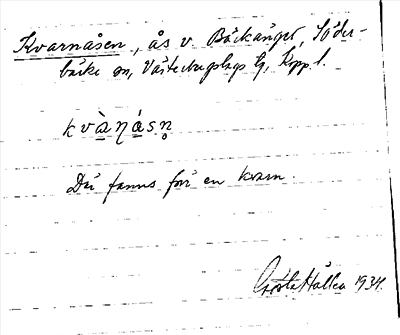 Kvarnåsen, ås v Bäckänget, Söder-
bärke sn, Västerbergslags tg, Kopp. l.
kvànásn̥
Där fanns förr en kvarn.
Gösta Hållén 1934.